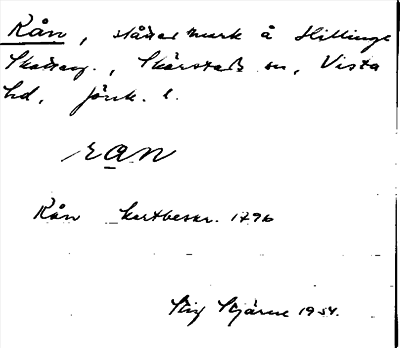 Rån, slåttermark å Hillinge
Skatteg., Skärstads sn, Vista
hd, Jönk. l.
ran
Rån kartbeskr. 1796
Stig Stjärne 1954.